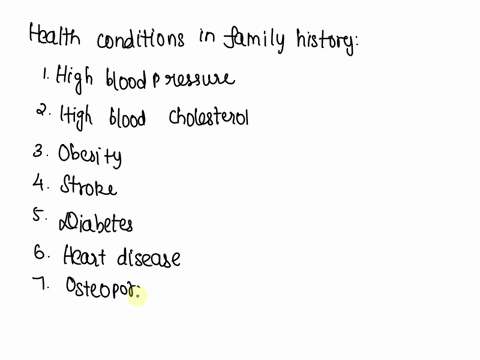 Health conditions in family history:
1. High blood pressure
2. High blood cholesterol
3. Obesity
4. Stroke
5. Diabetes
6. Heart disease
7. Osteopor